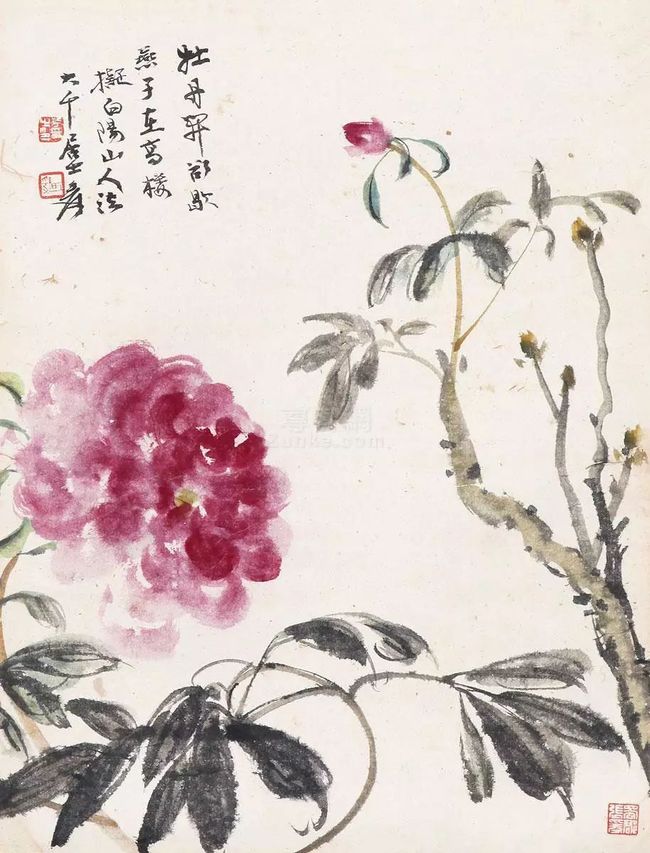 牡丹開欲歇
燕子在高樓
擬白陽山人法
大千居士爰
Zunke.com